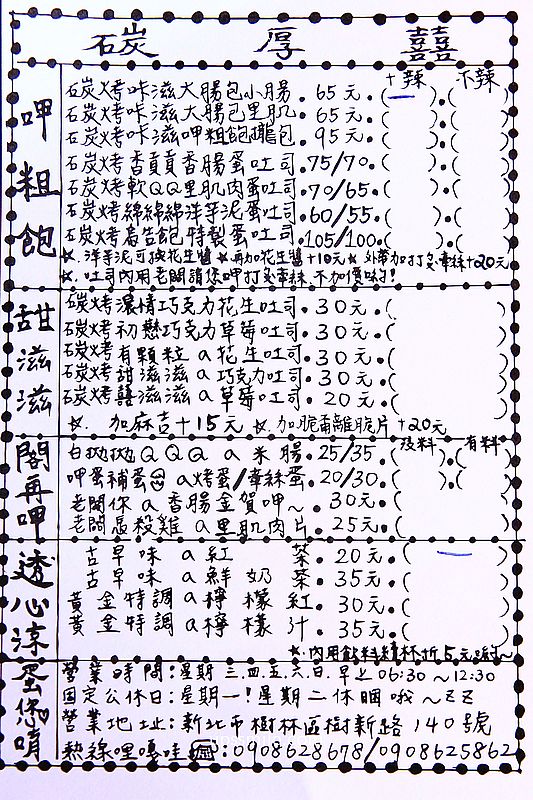 碳 厚 囍
十辣 不辣
呷粗飽
石炭烤咔滋大腸包小腸.65元.( ).( )
石炭烤咔滋大腸包里肌.65元.( ).( )
石炭烤咔滋呷粗飽攏包.95元.( ).( )
石炭烤香貢貢香腸蛋吐司.75/70.( ).( )
石炭烤軟QQ里肌肉蛋吐司.70/65.( ).( )
石炭烤綿綿綿洋芋泥蛋吐司.60/55.( ).( )
石炭烤尚告飽特製蛋吐司.105/100.( ).( )
☆.洋芋泥可換花生醬 ☆再加花生醬+10元☆外帶加打包牽絲+20元
☆.吐司內用老闆請您呷打包牽絲.不加價喲!
甜滋滋
石炭烤濃情巧克力花生吐司.30元.( )
石炭烤初戀巧克力草莓吐司.30元.( )
石炭烤有顆粒a花生吐司.30元.( )
石炭烤甜滋滋a巧克力吐司.30元.( )
石炭烤囍滋滋a草莓吐司.20元.( )
☆. 加麻吉+15元 ☆.加脆爾離脆片+20元
沒料 有料
閣再呷
白拋拋QQQa米腸.25/35( ).( )
呷蛋補蛋a烤蛋/牽絲蛋.20/30.( ).( )
老闆你a香腸金賀呷~.30元.( )
老闆屈殺雞a里肌肉片.25元.( )
透心涼
古早味a紅茶.20元.( )
古早味a鮮奶茶.35元.( )
黃金特調a檸檬紅.30元.( )
黃金特調a檸檬汁.35元.( )
☆.內用飲料續杯折5元喲~
蛋您唷
營業時間:星期三.四.五.六.日.早上06:30~12:30
固定公休日:星期一!星期二休睏哦~ZZ
營業地址:新北市樹林區樹新路140號
熱線哩嘎哇☎:0908628678/0908625862